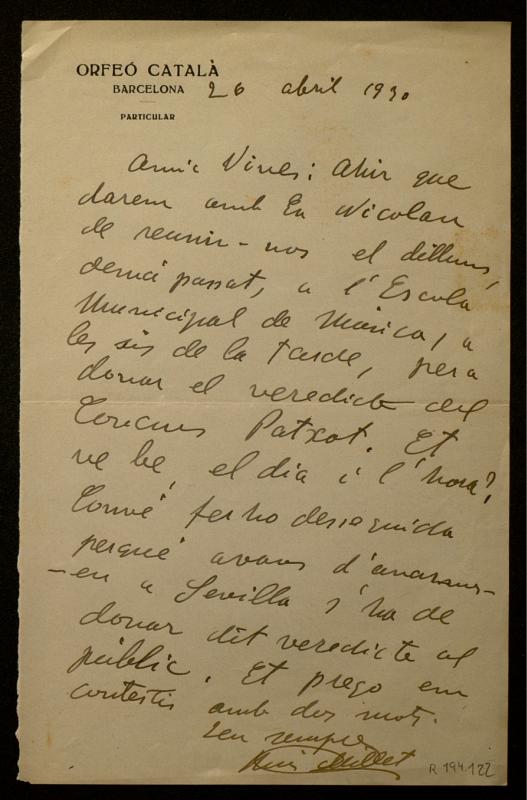 ORFEÓ CATALÀ
BARCELONA
PARTICULAR
26 abril 1930
Amic Vives: Ahir que
darem amb En Nicolau
de reunir-nos el dilluns,
demà passat, a l'Escola
Municipal de Música, a
les sis de la tarde, pera
donar el veredicte del
Concurs Patxot. Et
ve bé, el dia i l'hora?
Convé ferho desseguida
perqué avans d'anarsns-
-en a Sevilla s'ha de
donar dit veredicte al
públic. Et prego em
contestis amb dos mots.
Teu sempre
Lluis Millet
R. 194.122